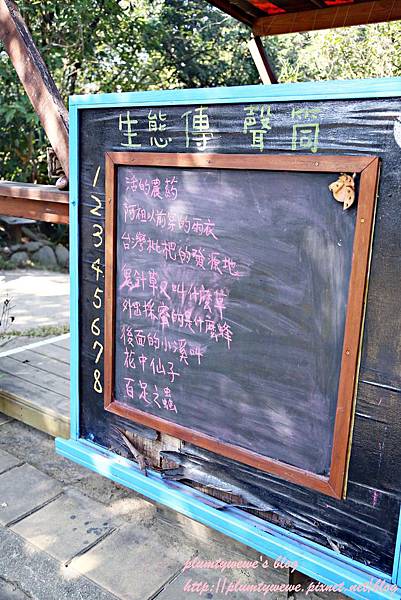 生態傳聲筒
1 活的農药
2 阿祖以前穿的雨衣
3 台灣枇杷的發源地
4 鬼針草又叫什麼草
5 外出採蜜的是什麼蜂
6 後面的小溪叫
7 花中仙子
8 百足之蟲
plumtywe's blog
http://plumtywe.pixnet.net/blog